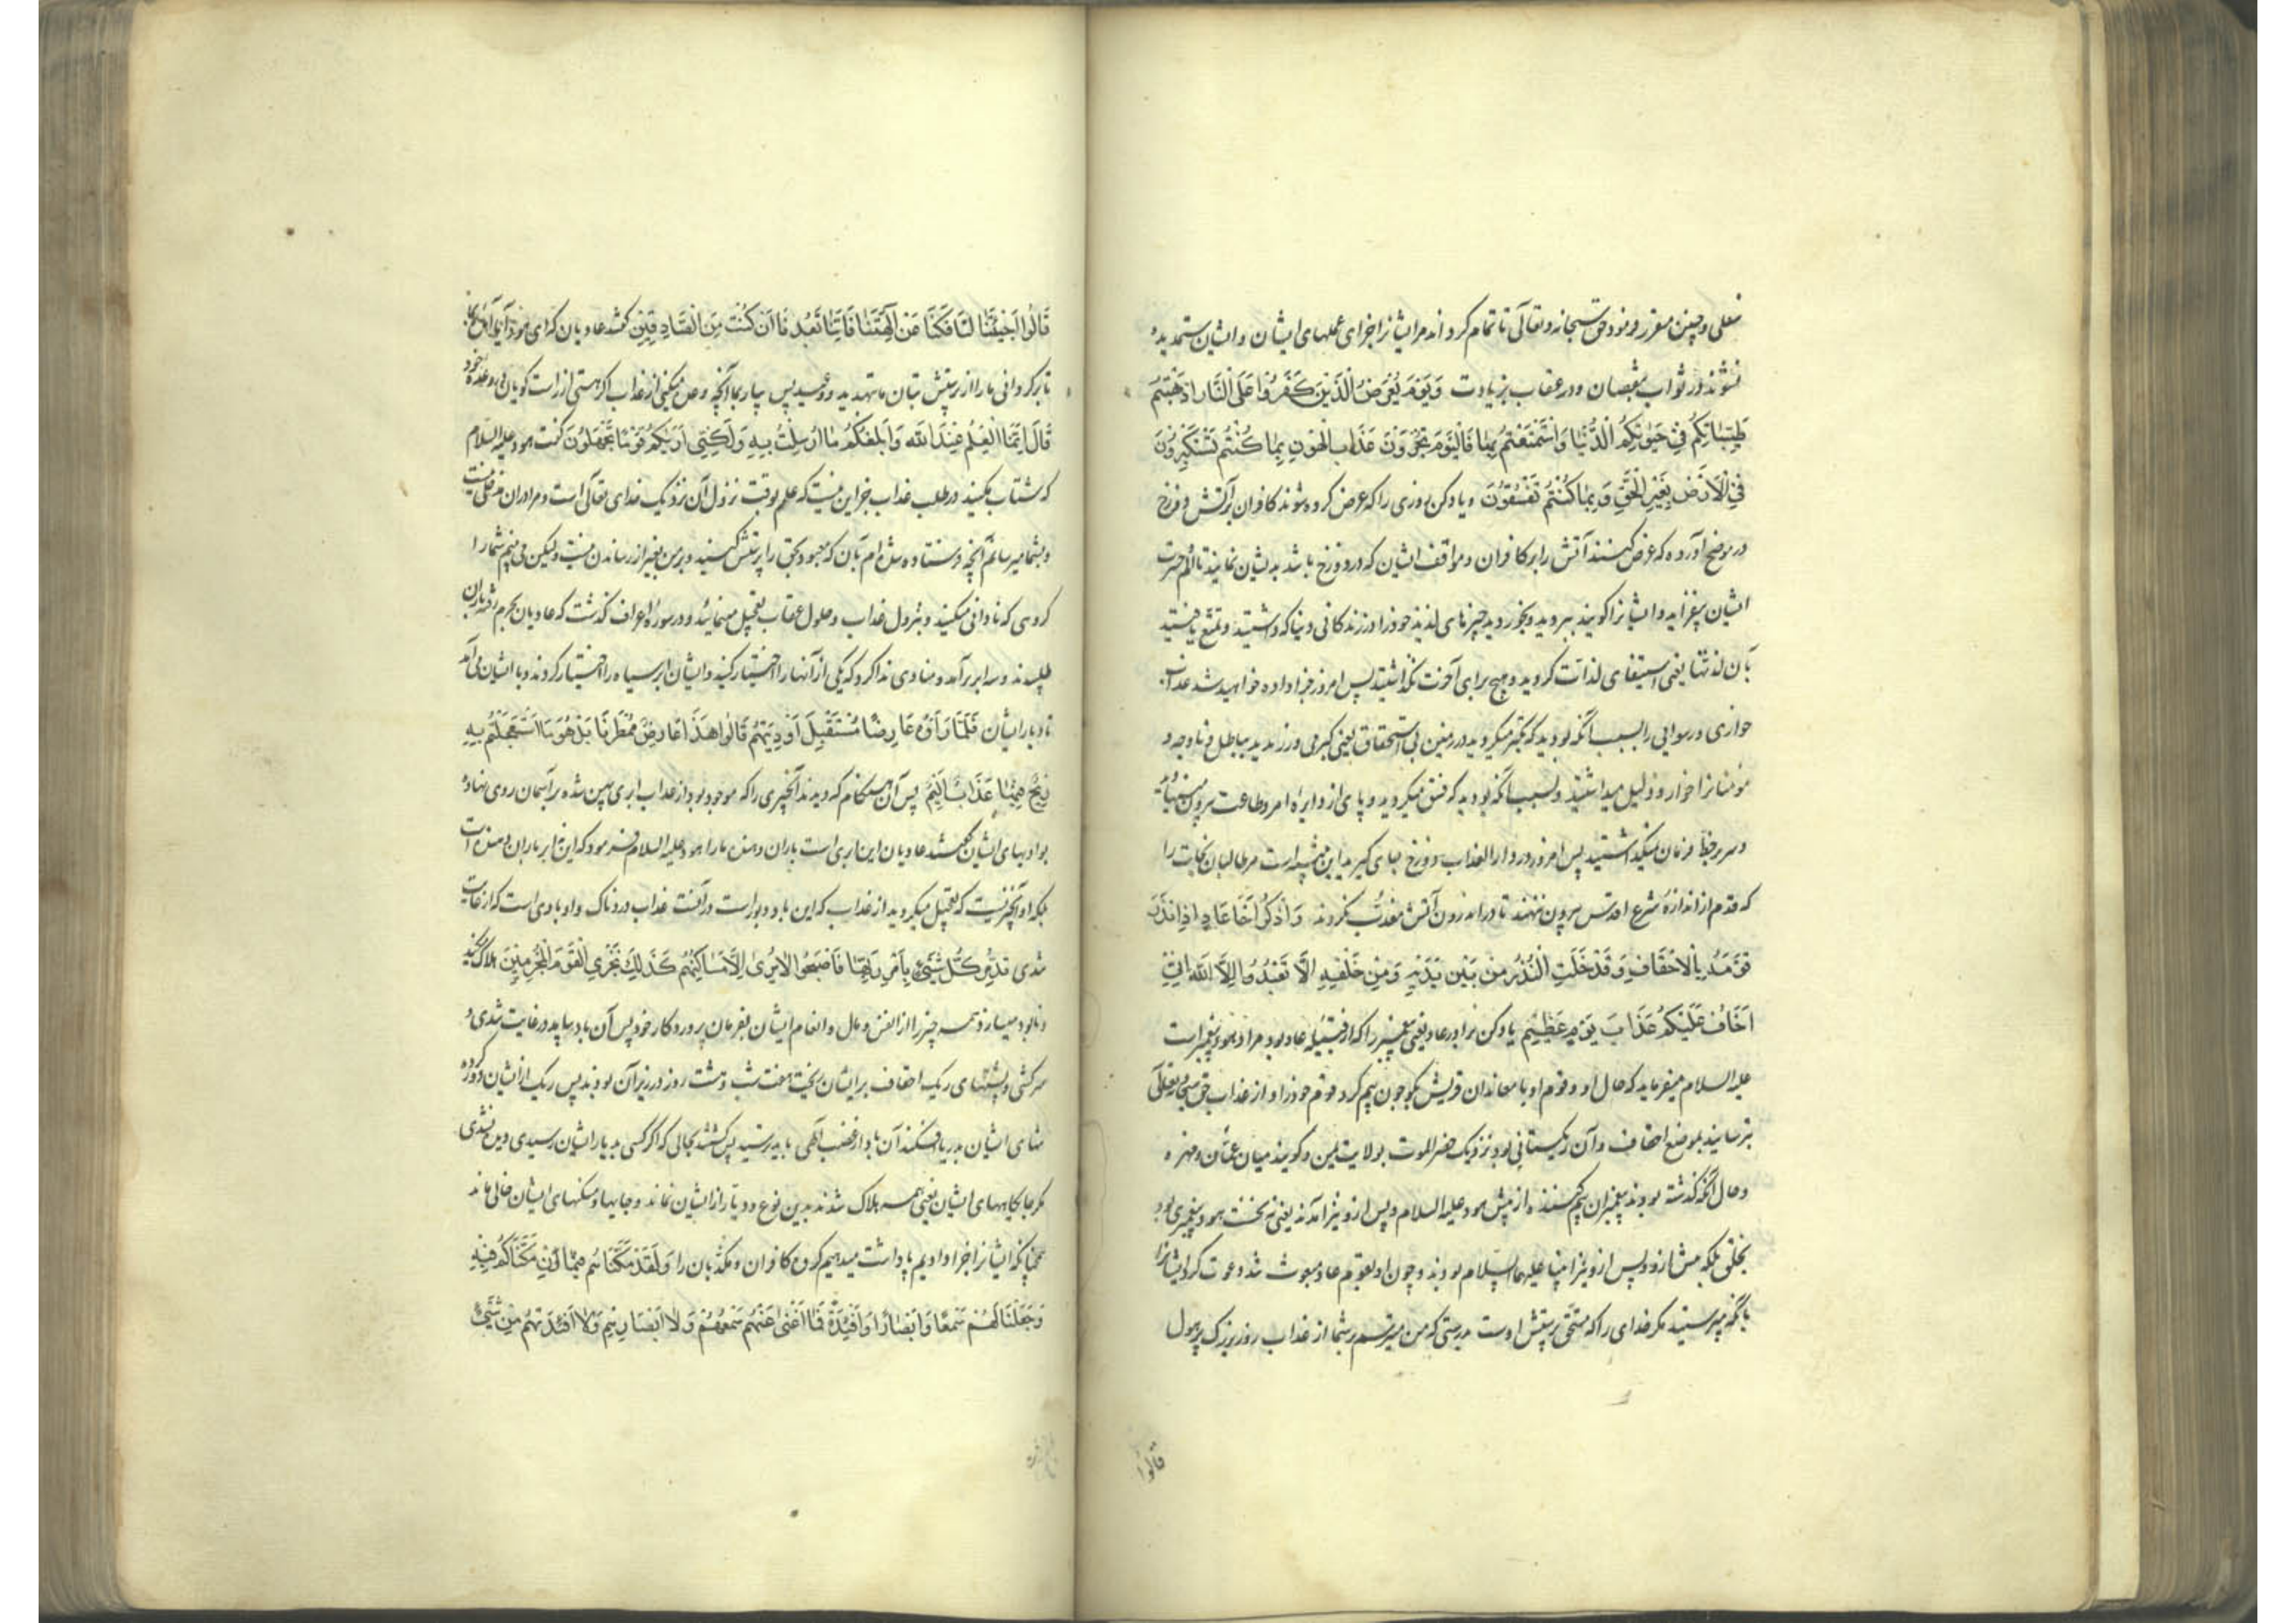 سفلی و چنین مقرر و نمود حق سبحانه و تعالی تا تمام کرداند مر ایشانرا جزای عملهای ایشان و ایشان ستم دیده
نشوند در ثواب بنقصان و در عقاب بزیادت وَيَوْمَ يُعْرَضُ الَّذِينَ كَفَرُوا عَلَى النَّارِ اَذْهَبْتُمْ
طَيِّبَاتِكُمْ فِي حَيٰوتِكُمُ الدُّنْيَا وَاسْتَمْتَعْتُمْ بِهَا فَالْيَوْمَ تُجْزَوْنَ عَذَابَ الْهُونِ بِمَا كُنْتُمْ تَسْتَكْبِرُونَ
فِي الْاَرْضِ بِغَيْرِ الْحَقِّ وَبِمَا كُنْتُمْ تَفْسُقُونَ و یاد کن روزی را که عرض کرده شوند کافران بر آتش دوزخ
در موضح آورده که عرض کنند آتش را بر کافران و مواقف ایشان که در دوزخ باشد بدیشان نمایند تا الم حسرت
ایشان بیفزاید و ایشانرا گویند ببردید و بخوردید چیزهای لذیذ خود را در زندکانی دنیا که داشتید و تمتع یافتید
بآن لذتها یعنی استیفای لذات کردید و هیچ برای آخرت نگذاشتید پس امروز جزا داده خواهید شد عذاب
خواری و رسوایی را بسبب آنکه بودید که تکبر میکردید در زمین بی استحقاق یعنی کبر می ورزیدید بباطل و ناوجه و
مؤمنانرا خوار و ذلیل میداشتید و بسبب آنکه بودید که فسق میکردید و پای از دایره امر و طاعت بیرون مینهادید
و سر بر خط فرمان نمیکذاشتید پس امروز در دار العذاب دوزخ جای کیرید این تنبیه است مر طالبان نجات را
که قدم از اندازه شرع اقدس بیرون ننهند تا در اندرون آتش معذب نکردند وَاذْكُرْ اَخَا عَادٍ اِذْ اَنْذَرَ
قَوْمَهُ بِالْاَحْقَافِ وَقَدْ خَلَتِ النُّذُرُ مِنْ بَيْنِ يَدَيْهِ وَمِنْ خَلْفِهِ اَلَّا تَعْبُدُوا اِلَّا اللّٰهَ اِنِّي
اَخَافُ عَلَيْكُمْ عَذَابَ يَوْمٍ عَظِيمٍ یاد کن برادر عاد یعنی پیغمبر را که از قبیله عاد بود مراد هود پیغمبر است
علیه السلام میفرماید که حال او و قوم او با معاندان قریش بگو چون بیم کرد قوم خود را و از عذاب حق سبحانه و تعالی
بترسانید بموضع احقاف و آن ریکستانی بود نزدیک حضرالموت بولایت یمن و کویند میان عمان و مهره
و حال آنکه گذشته بودند پیغمبران بیم کنننده از پیش هود علیه السلام و پس از و نیز آمدند یعنی نه نخست هود پیغمبری بود
بخلق بلکه پیش از و و پس از و نیز انبیا علیهم السلام بودند و چون او بقوم عاد مبعوث شد دعوت کرد ایشانرا
بآنکه مپرستید مکر خدای را که مستحق پرستش اوست بدرستی که من میترسم بر شما از عذاب روز بزرک پر هول
قالوا
قَالُوا اَجِئْتَنَا لِتَأْفِكَنَا عَنْ اٰلِهَتِنَا فَأْتِنَا بِمَا تَعِدُنَا اِنْ كُنْتَ مِنَ الصَّادِقِينَ گفتند عادیان که ای هود آیا آمدی بما
تا برکردانی ما را از پرستش بتان ما بتهدید و وعید پس بیار بما آنچه وعده میکنی از عذاب اکر هستی از راست کویان در وعده خود
قَالَ اِنَّمَا الْعِلْمُ عِنْدَ اللّٰهِ وَاُبَلِّغُكُمْ مَا اُرْسِلْتُ بِهِ وَلٰكِنِّي اَرٰيكُمْ قَوْمًا تَجْهَلُونَ کفت هود علیه السلام
که شتاب مکنید در طلب عذاب جز این نیست که علم بوقت نزول آن نزدیک خدای تعالی است و مرا در آن مدخلی نیست
و بشما میرسانم آنچه فرستاده شده ام بآن که معبود بحق را پرستش کنید و بر من بغیر از رساندن نیست ولیکن می بینم شما را
کروهی که نادانی میکنید و بنزول عذاب و حلول عقاب تعجیل مینمائید و در سوره اعراف گذشت که عادیان بحرم رفته باران
طلبیدند و سه ابر برآمد و منادی ندا کرد که یکی از آنها را اختیار کنید و ایشان ابر سیاه را اختیار کردند و با ایشان می آمد
تا دیار ایشان فَلَمَّا رَاَوْهُ عَارِضًا مُسْتَقْبِلَ اَوْدِيَتِهِمْ قَالُوا هٰذَا عَارِضٌ مُمْطِرُنَا بَلْ هُوَ مَا اسْتَعْجَلْتُمْ بِهِ
رِيحٌ فِيهَا عَذَابٌ اَلِيمٌ پس آن هنکام که دیدند آنچیزی را که موعود بود از عذاب ابری پهن شده بر آسمان روی نهاده
بوادیهای ایشان گفتند عادیان این ابری است باران دهنده ما را هود علیه السلام فرمود که این نه ابر باران دهنده است
بلکه او آنچیزیست که تعجیل میکردید از عذاب که این باد دبورست در آنست عذاب دردناک و او بادی است که از غایت
شدی تُدَمِّرُ كُلَّ شَيْءٍ بِاَمْرِ رَبِّهَا فَاَصْبَحُوا لَا يُرٰى اِلَّا مَسَاكِنُهُمْ كَذٰلِكَ نَجْزِي الْقَوْمَ الْمُجْرِمِينَ هلاک کند
و نابود میسازد همه چیز را از انفس و مال و انعام ایشان بفرمان پروردکار خود پس آن باد بیاید در غایت شدی و
سرکشی و پشتهای ریک احقاف بر ایشان بیخت هفت شب و هشت روز در زیر آن بودند پس ریک از ایشان دور کرده
ایشان بدریا افکند آن باد از غضب الهی پدید رسید پس کشتند بحالی که اکر کسی بدیار ایشان رسیدی و بدین ندیدی
مکر جایکاههای ایشان یعنی همه هلاک شدند بدین نوع و دیار از ایشان نماند و جایها و مسکنهای ایشان خالی ماند
همچنانکه ایشانرا جزا دادیم پاداشت میدهیم کروه کافران و مکذبان را وَلَقَدْ مَكَّنَّاهُمْ فِيمَا اِنْ مَكَّنَّاكُمْ فِيهِ
وَجَعَلْنَا لَهُمْ سَمْعًا وَاَبْصَارًا وَاَفْئِدَةً فَمَا اَغْنٰى عَنْهُمْ سَمْعُهُمْ وَلَا اَبْصَارُهُمْ وَلَا اَفْئِدَتُهُمْ مِنْ شَيْءٍ